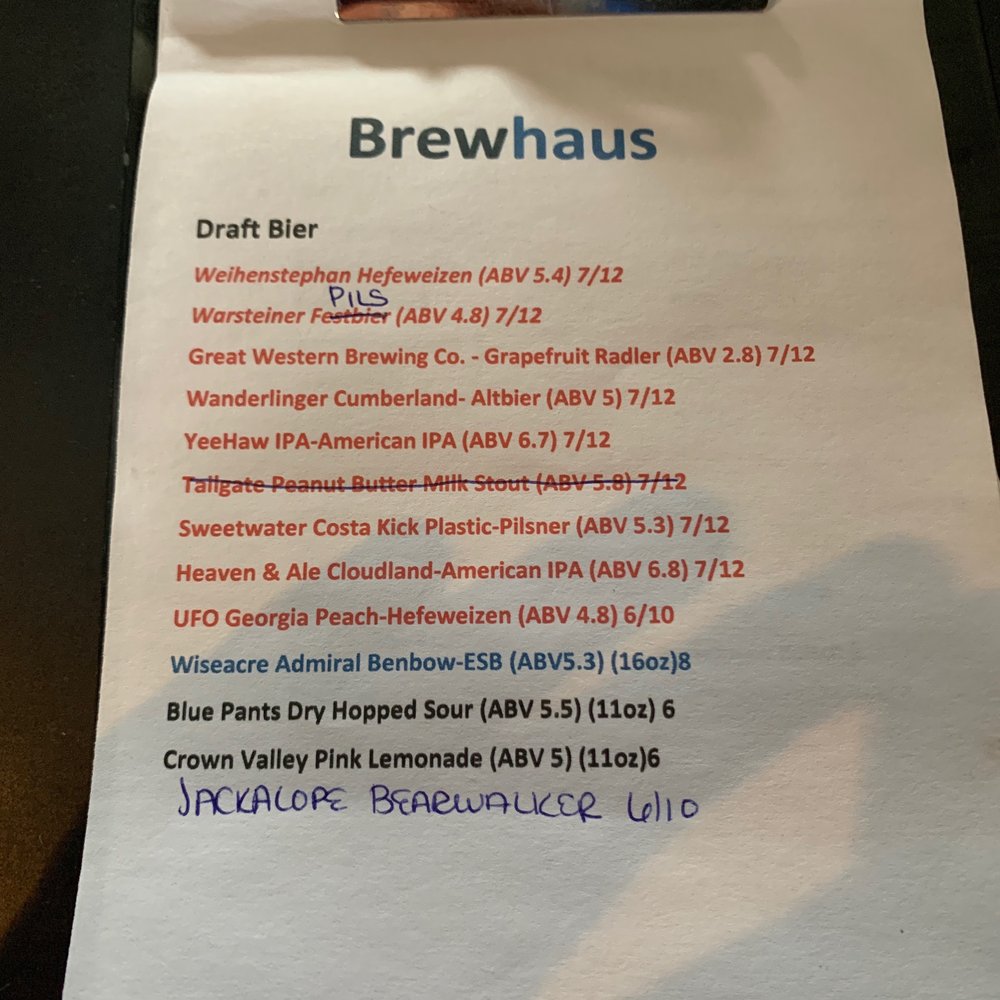 Brewhaus
Draft Bier
Weihenstephan Hefeweizen (ABV 5.4) 7/12
PILS
Warsteiner Festbier (ABV 4.8) 7/12
Great Western Brewing Co. - Grapefruit Radler (ABV 2.8) 7/12
Wanderlinger Cumberland- Altbier (ABV 5) 7/12
YeeHaw IPA-American IPA (ABV 6.7) 7/12
Tailgate Peanut Butter Milk Stout (ABV 5.8) 7/12
Sweetwater Costa Kick Plastic-Pilsner (ABV 5.3) 7/12
Heaven & Ale Cloudland-American IPA (ABV 6.8) 7/12
UFO Georgia Peach-Hefeweizen (ABV 4.8) 6/10
Wiseacre Admiral Benbow-ESB (ABV5.3) (16oz)8
Blue Pants Dry Hopped Sour (ABV 5.5) (11oz) 6
Crown Valley Pink Lemonade (ABV 5) (11oz)6
JACKALOPE BEARWALKER 6/10